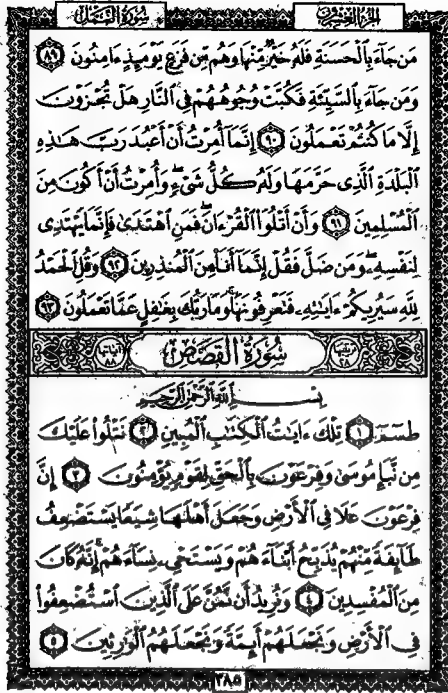 الجزء العشرون
سورة النمل
مَن جَآءَ بِٱلْحَسَنَةِ فَلَهُۥ خَيْرٌ مِّنْهَا وَهُم مِّن فَزَعٍ يَوْمَئِذٍ ءَامِنُونَ ٨٩
وَمَن جَآءَ بِٱلسَّيِّئَةِ فَكُبَّتْ وُجُوهُهُمْ فِى ٱلنَّارِ هَلْ تُجْزَوْنَ
إِلَّا مَا كُنتُمْ تَعْمَلُونَ ٩٠ إِنَّمَآ أُمِرْتُ أَنْ أَعْبُدَ رَبَّ هَٰذِهِ
ٱلْبَلْدَةِ ٱلَّذِى حَرَّمَهَا وَلَهُۥ كُلُّ شَىْءٍ وَأُمِرْتُ أَنْ أَكُونَ مِنَ
ٱلْمُسْلِمِينَ ٩١ وَأَنْ أَتْلُوَا۟ ٱلْقُرْءَانَ فَمَنِ ٱهْتَدَىٰ فَإِنَّمَا يَهْتَدِى
لِنَفْسِهِۦ وَمَن ضَلَّ فَقُلْ إِنَّمَآ أَنَا۠ مِنَ ٱلْمُنذِرِينَ ٩٢ وَقُلِ ٱلْحَمْدُ
لِلَّهِ سَيُرِيكُمْ ءَايَٰتِهِۦ فَتَعْرِفُونَهَا وَمَا رَبُّكَ بِغَٰفِلٍ عَمَّا تَعْمَلُونَ ٩٣
سُورَةُ الْقَصَصِ
بِسْمِ ٱللَّهِ ٱلرَّحْمَٰنِ ٱلرَّحِيمِ
طسٓمٓ ١ تِلْكَ ءَايَٰتُ ٱلْكِتَٰبِ ٱلْمُبِينِ ٢ نَتْلُوا۟ عَلَيْكَ
مِن نَّبَإِ مُوسَىٰ وَفِرْعَوْنَ بِٱلْحَقِّ لِقَوْمٍ يُؤْمِنُونَ ٣ إِنَّ
فِرْعَوْنَ عَلَا فِى ٱلْأَرْضِ وَجَعَلَ أَهْلَهَا شِيَعًا يَسْتَضْعِفُ
طَآئِفَةً مِّنْهُمْ يُذَبِّحُ أَبْنَآءَهُمْ وَيَسْتَحْىِۦ نِسَآءَهُمْ إِنَّهُۥ كَانَ
مِنَ ٱلْمُفْسِدِينَ ٤ وَنُرِيدُ أَن نَّمُنَّ عَلَى ٱلَّذِينَ ٱسْتُضْعِفُوا۟
فِى ٱلْأَرْضِ وَنَجْعَلَهُمْ أَئِمَّةً وَنَجْعَلَهُمُ ٱلْوَٰرِثِينَ ٥
٣٨٥